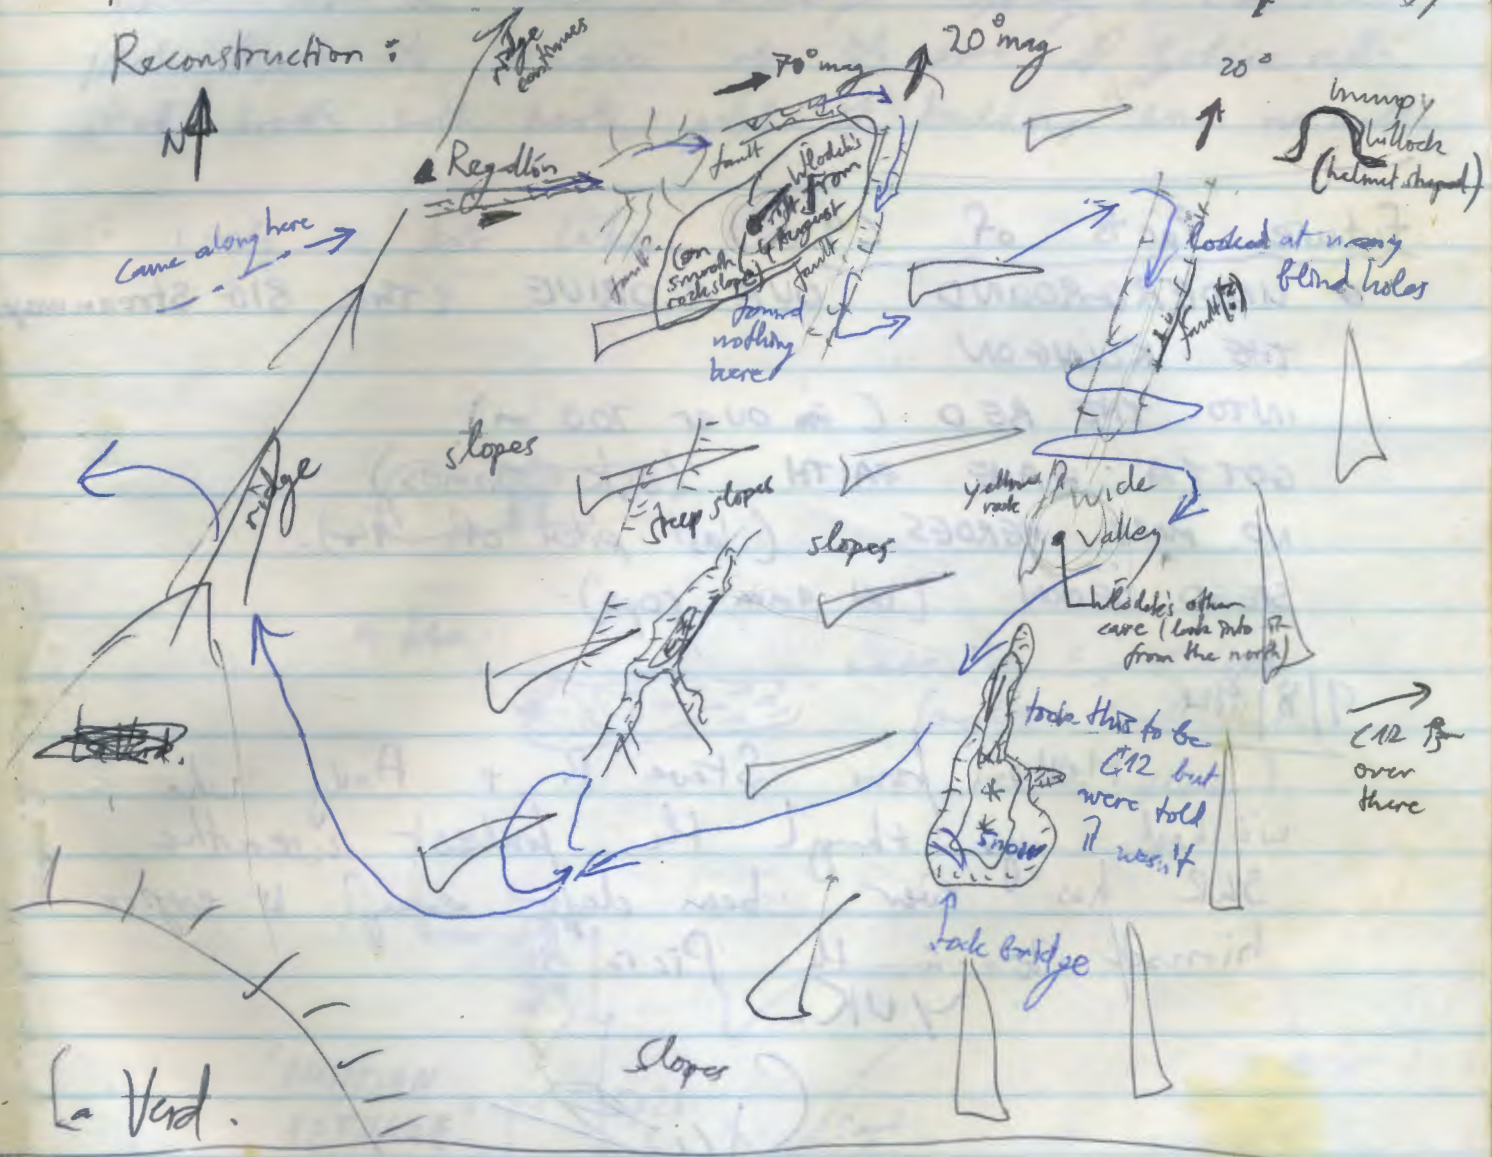 Reconstruction :
N
ridge
continues
70° mag
20° mag
20°
lumpy
hillock
(helmet shaped)
Regallón
came along here
fault
Wlodek's
rift from
4 August
(on
smooth
rockslope)
fault
fault
found
nothing
here
looked at many
blind holes
fault (?)
slopes
ridge
steep slopes
slopes
yellow
rock
wide
valley
Wlodek's other
cave (look into it
from the north)
took this to be
C12 but
were told
it wasn't
C12 is
over
there
snow
rock bridge
slopes
La Verd.